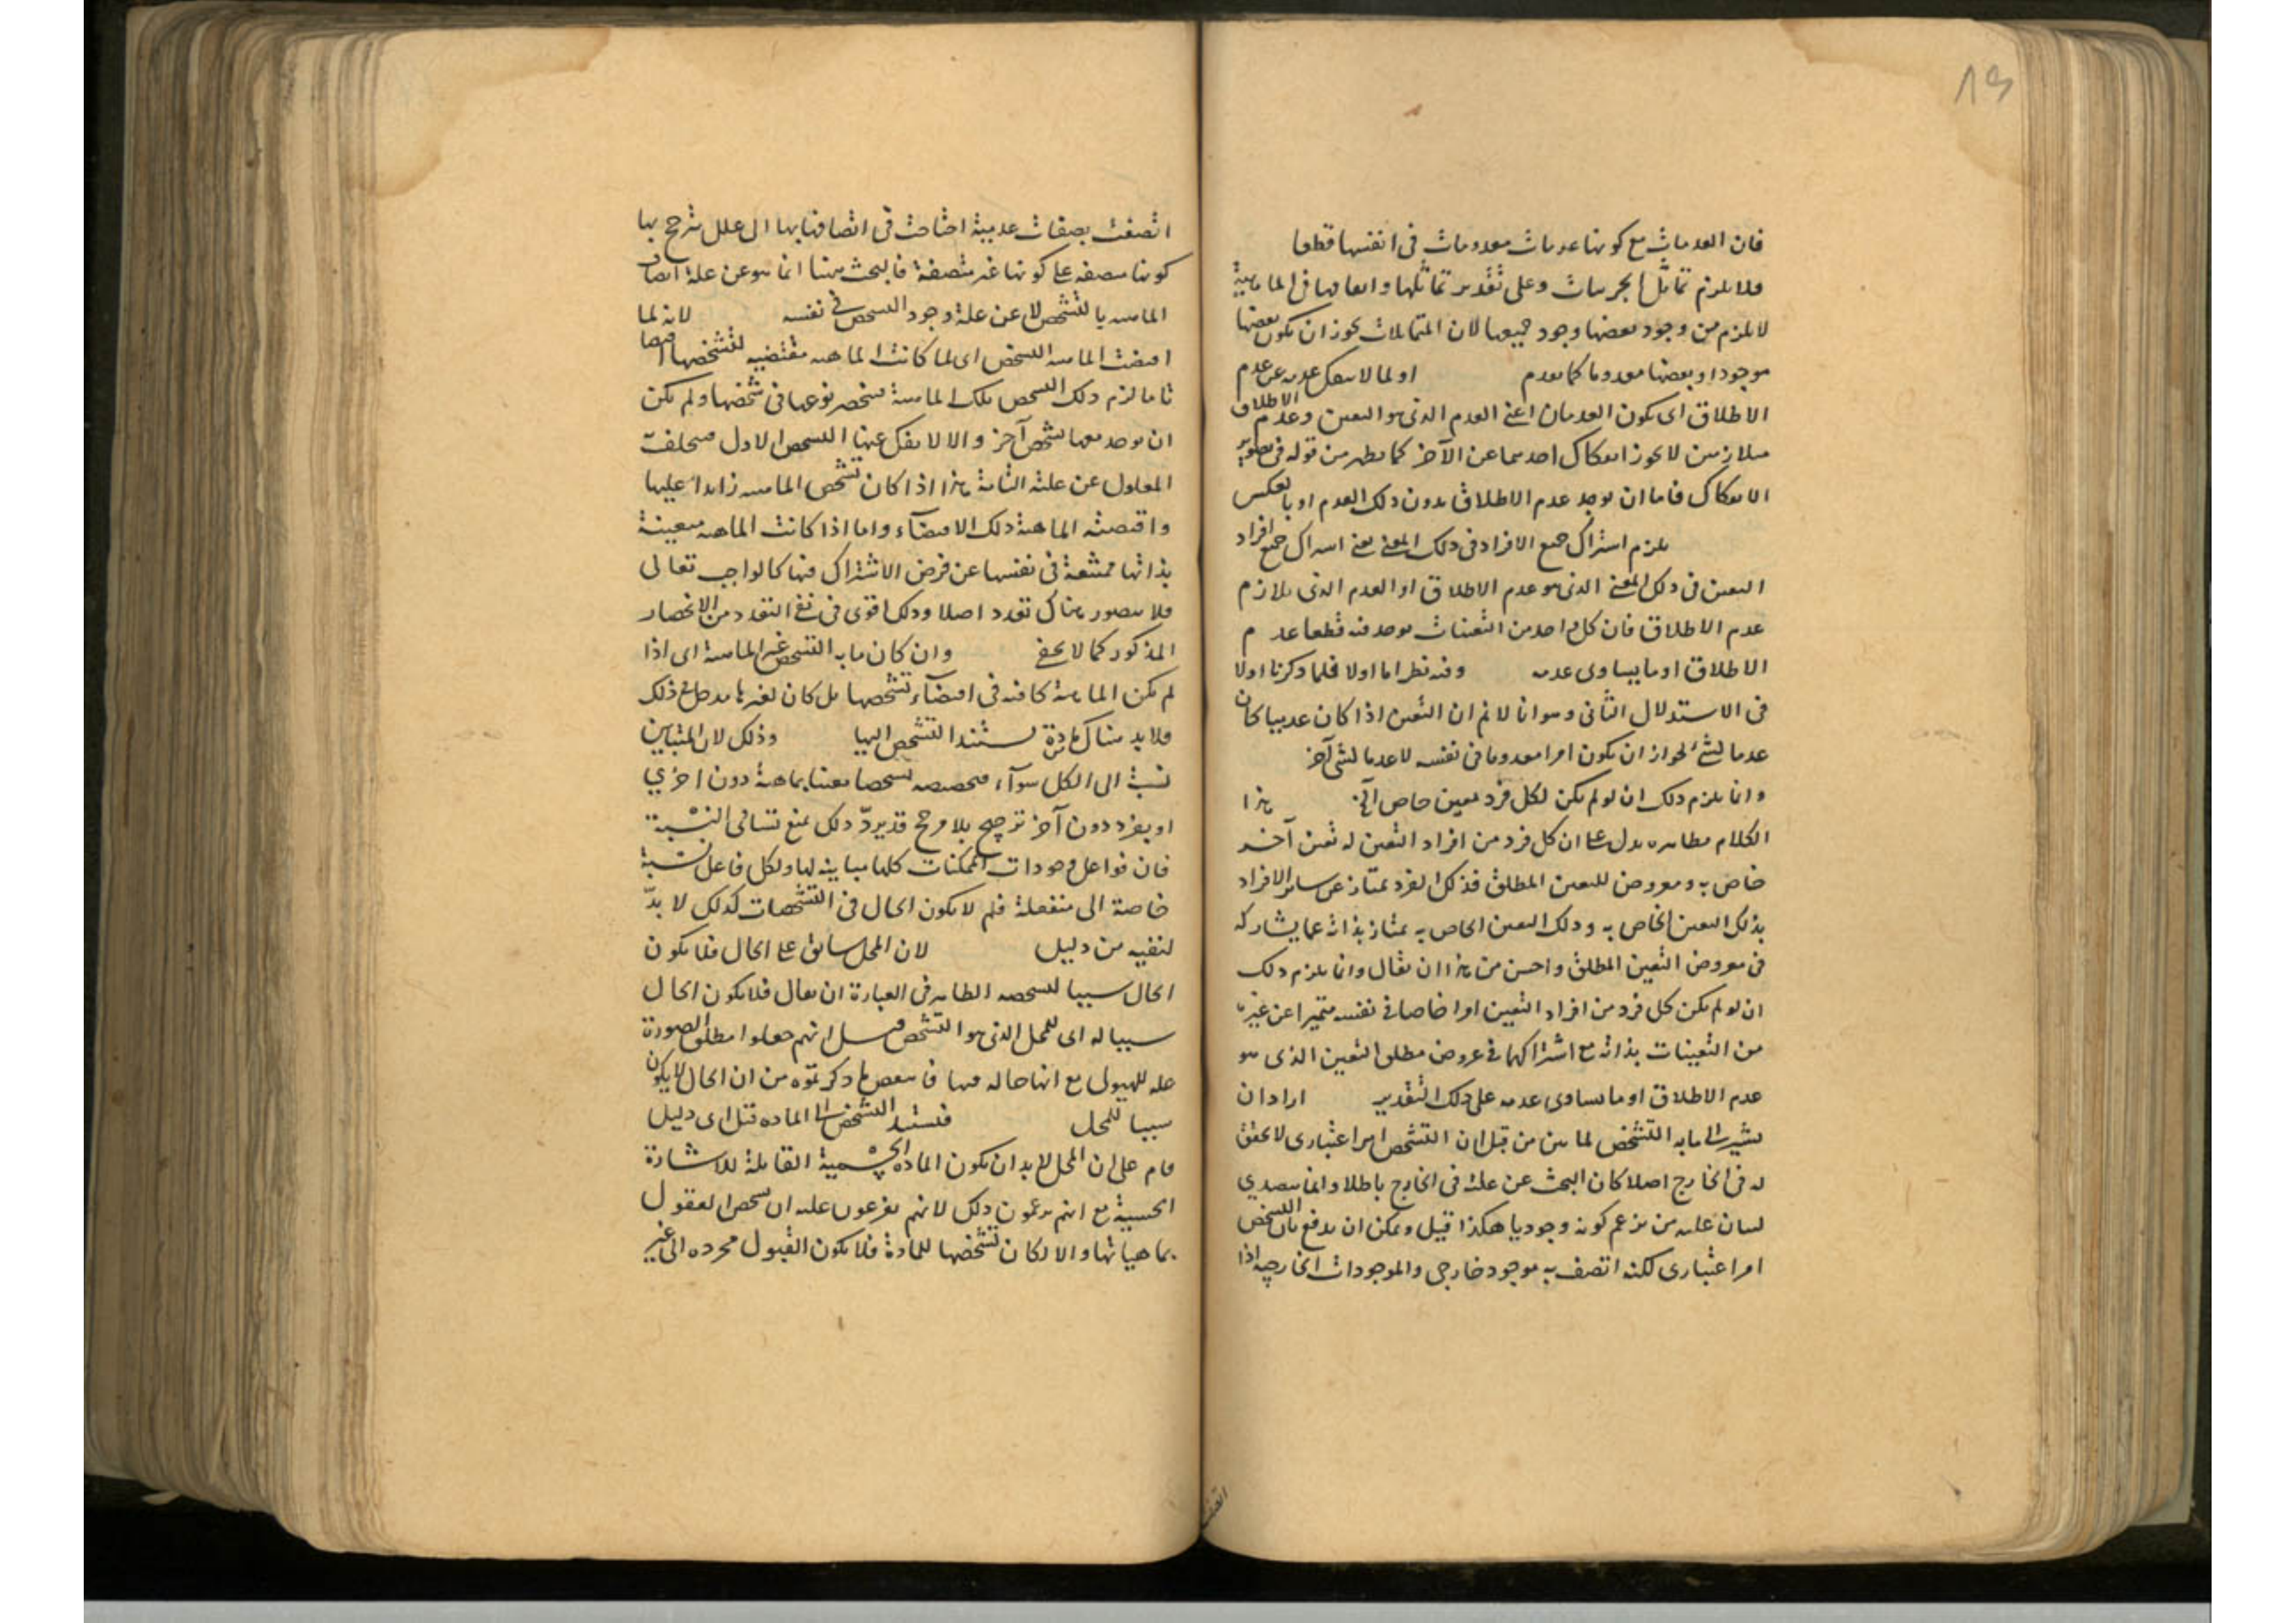 فان العدمات مع كونها عدمات معدومات فى انفسها قطعا
فلا يلزم تماثل الجزئيات وعلى تقدير تماثلها واتفاقها فى الماهية
لا يلزم من وجود بعضها وجود جميعها لان المتماثلات يجوز ان يكون بعضها
موجودا وبعضها معدوما كما تقدم او لما لا ينفك عدمه عن عدم
الاطلاق اى يكون العدمان اعنى العدم الذى هو التعين وعدم الاطلاق
متلازمين لا يجوز انفكاك احدهما عن الآخر كما يظهر من قوله فى تصوير
الانفكاك فاما ان يوجد عدم الاطلاق بدون ذلك العدم او بالعكس
يلزم اشتراك جميع الافراد فى ذلك المعنى يعنى اشتراك جميع افراد
التعين فى ذلك المعنى الذى هو عدم الاطلاق او العدم الذى يلازم
عدم الاطلاق فان كل واحد من التعينات يوجد فيه قطعا عدم
الاطلاق او ما يساوى عدمه وفيه نظر اما اولا فلما ذكرنا اولا
فى الاستدلال الثانى وهو انا لا نم ان التعين اذا كان عدميا كان
عدما لشئ لجواز ان يكون امرا معدوما فى نفسه لا عدما لشئ آخر
وانما يلزم ذلك ان لو لم يكن لكل فرد تعين خاص آلخ هذا
الكلام بظاهره يدل على ان كل فرد من افراد التعين له تعين آخر
خاص به ومعروض للتعين المطلق فذلك الفرد يمتاز عن سائر الافراد
بذلك التعين الخاص به وذلك التعين الخاص به يمتاز بذاته عما يشاركه
فى معروض التعين المطلق واحسن من هذا ان يقال وانما يلزم ذلك
ان لو لم يكن كل فرد من افراد التعين امرا خاصا فى نفسه متميزا عن غيره
من التعينات بذاته مع اشتراكهما فى عروض مطلق التعين الذى هو
عدم الاطلاق او ما يساوى عدمه على ذلك التقدير اراد ان
يشير الى ما به التشخص لما بين من قبل ان التشخص امر اعتبارى لا تحقق
له فى الخارج اصلا كان البحث عن علته فى الخارج باطلا وانما يتصدى
لبيان علته من يزعم كونه وجوديا هكذا قيل ويمكن ان يدفع بان التشخص
امر اعتبارى لكنه اتصف به موجود خارجى والموجودات الخارجية اذا
اتصفت بصفات عدمية احتاجت فى اتصافها بها الى علل ترجح بها
كونها متصفة على كونها غير متصفة فالبحث ههنا انما هو عن علة اتصاف
الماهية بالتشخص لا عن علة وجود التشخص فى نفسه لانه لما
اقتضت الماهية التشخص اى لما كانت الماهية مقتضيه لتشخصها اقتضاء
تاما لزم ذلك التشخص تلك الماهية فينحصر نوعها فى شخصها ولم يكن
ان يوجد معها تشخص آخر والا لانفك عنها التشخص الاول فيتخلف
المعلول عن علته التامة هذا اذا كان تشخص الماهية زايدا عليها
واقتضته الماهية ذلك الاقتضآء واما اذا كانت الماهية متعينة
بذاتها ممتنعة فى نفسها عن فرض الاشتراك فيها كالواجب تعالى
فلا يتصور هناك تعدد اصلا وذلك اقوى فى نفى التعدد من الانحصار
المذكور كما لا يخفى وان كان ما به التشخص غير الماهية اى اذا
لم يكن الماهية كافية فى اقتضآء تشخصها بل كان لغيرها مدخل فى ذلك
فلا بد هناك من مادة يستند التشخص اليها وذلك لان المتباين
نسبته الى الكل سوآء فتخصيصه تشخصا معينا بماهية دون اخرى
او بفرد دون آخر ترجيح بلا مرجح قد يردّ ذلك بمنع تساوى النسبة
فان فواعل وجودات الممكنات كلها مباينة لها ولكل فاعل نسبة
خاصة الى منفعله فلم لا يكون الحال فى التشخصات كذلك لا بدّ
لنفيه من دليل لان المحل سابق على الحال فلا يكون
الحال سببا لتشخصه الظاهر فى العبارة ان يقال فلا يكون الحال
سببا له اى للمحل الذى هو التشخص قيل انهم جعلوا مطلق الصورة
علة للهيولى مع انها حالة فيها فانتقض ما ذكرتموه من ان الحال لا يكون
سببا للمحل فيستند التشخص الى المادة قيل اى دليل
قام على ان المحل لا بد ان يكون المادة الجسمية القابلة للاشارة
الحسية مع انهم يدعون ذلك لانهم يفرعون عليه ان تشخص العقول
بماهياتها والا لكان تشخصها للمادة فلا يكون العقول مجردة الى غير